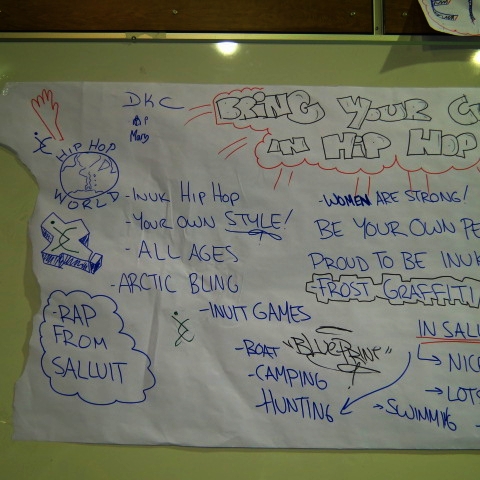 DKC
BRING YOUR
IN HIP HOP
HIP HOP
WORLD
- INUK HIP HOP
- YOUR OWN STYLE!
- ALL AGES
- ARCTIC BLING
- INUIT GAMES
- RAP
FROM
SALLUIT
- BOAT "BLUEPRINT"
- CAMPING
- HUNTING
- WOMEN ARE STRONG!
BE YOUR OWN PE
PROUD TO BE INUK
FROST GRAFFITI
IN SALL
NICE
LOTS
SWIMMING